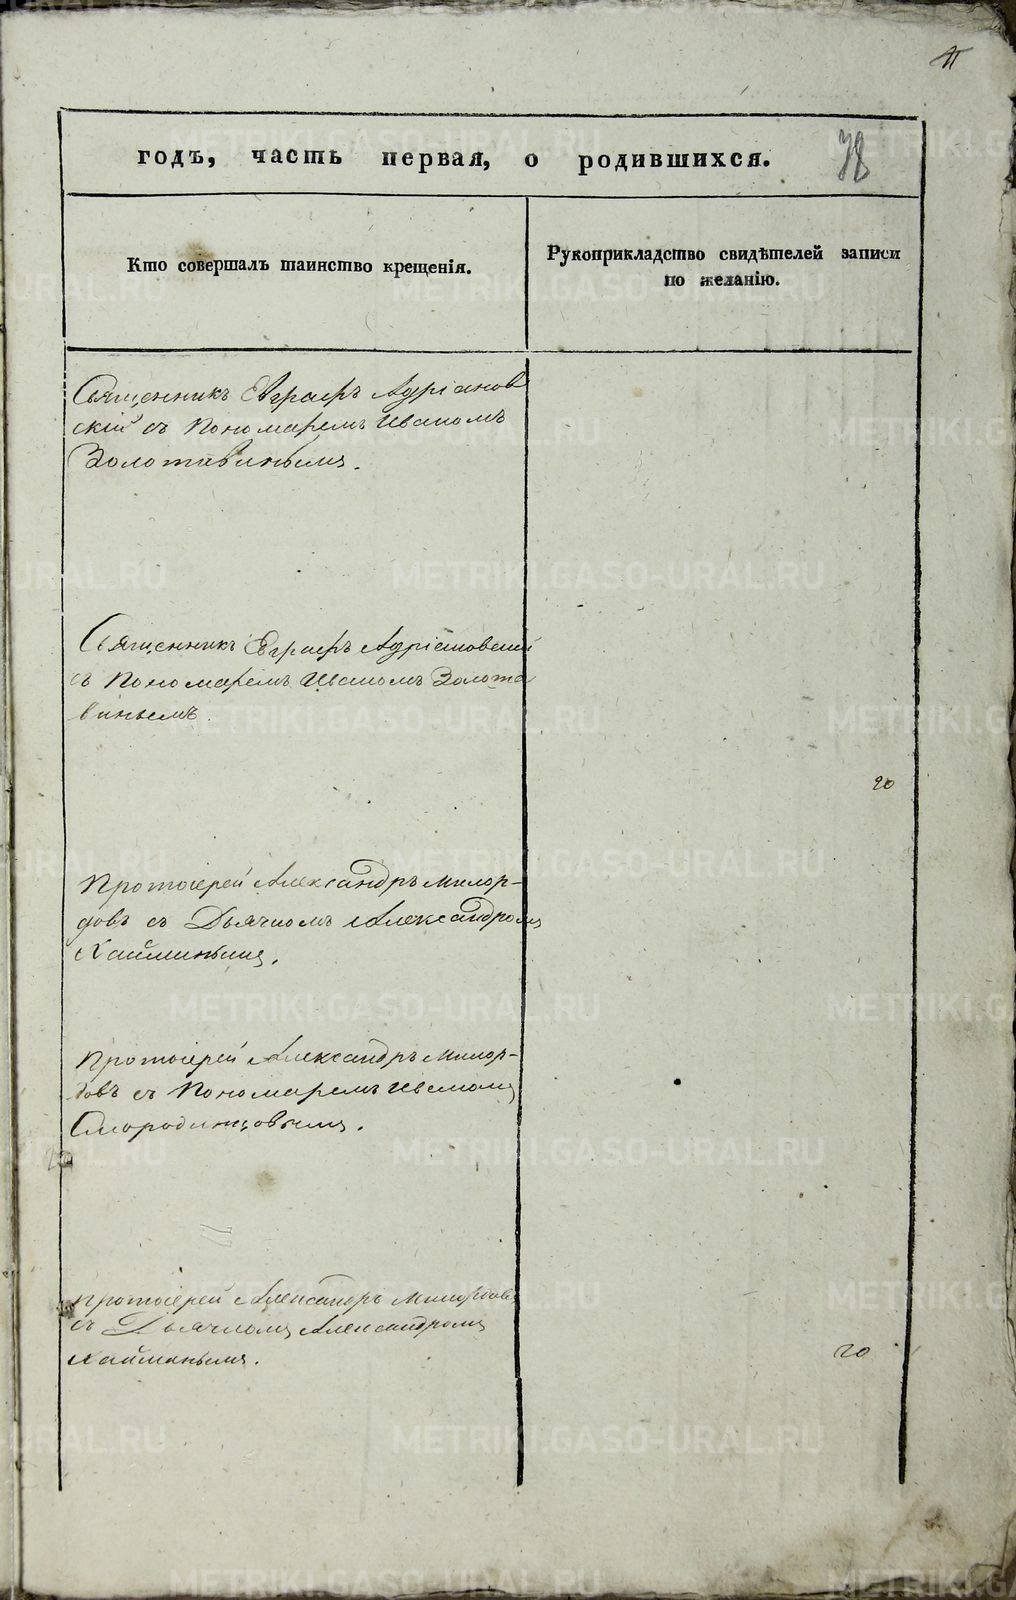 11
годъ, часть первая, о родившихся.
38
Кто совершалъ таинство крещенія.
Рукоприкладство свидѣтелей записи
по желанію.
Священникъ Евграфъ Адріанов
скій съ Пономаремъ Иваномъ
Золотавинымъ.
Священникъ Евграфъ Адріановскій
съ Пономаремъ Иваномъ Золота
винымъ.
20
Протоіерей Александръ Милор-
довъ съ Дьячкомъ Александромъ
Хайминымъ.
Протоіерей Александръ Милор-
довъ съ Пономаремъ Иваномъ
Смородинцовымъ.
Протоіерей Александръ Милордовъ
съ Дьячкомъ Александромъ
Хайминымъ.
20
METRIKI.GASO-URAL.RU